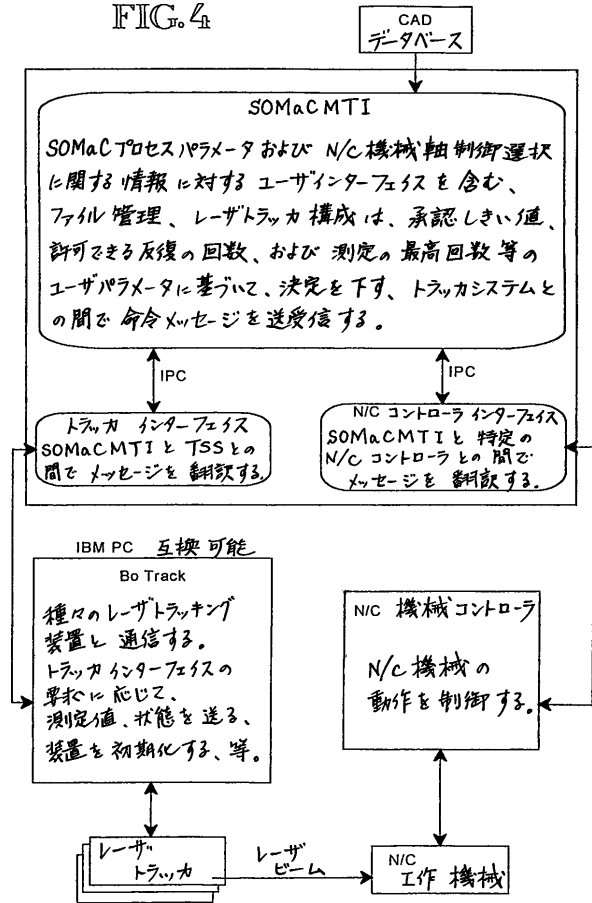 FIG. 4
CAD
データベース
SOMaCMTI
SOMaCプロセスパラメータおよび N/C機械軸制御選択
に関する情報に対するユーザインターフェイスを含む、
ファイル管理、レーザトラッカ構成は、承認しきい値、
許可できる反復の回数、および測定の最高回数等の
ユーザパラメータに基づいて、決定を下す、トラッカシステムと
の間で命令メッセージを送受信する。
IPC
IPC
トラッカ インターフェイス
SOMaCMTIとTSSとの
間でメッセージを翻訳する。
N/C コントローラ インターフェイス
SOMaCMTIと特定の
N/Cコントローラとの間で
メッセージを翻訳する。
IBM PC 互換可能
Bo Track
種々のレーザトラッキング
装置と通信する。
トラッカインターフェイスの
要求に応じて、
測定値、状態を送る、
装置を初期化する、等。
N/C 機械コントローラ
N/C機械の
動作を制御する。
レーザ
トラッカ
レーザ
ビーム
N/C
工作機械